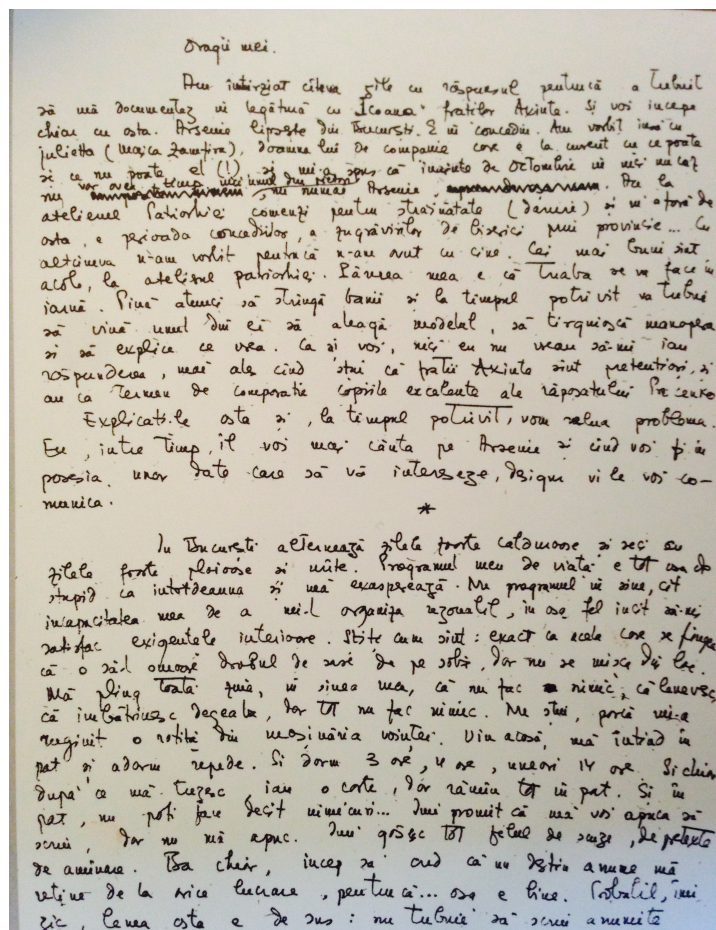 Dragii mei.
Am întîrziat cîteva zile cu răspunsul pentrucă a trebuit
să mă documentez în legătură cu "Icoana" fratilor Axinte. Și voi începe
chiar cu asta. Arsenie lipsește din București. E în concediu. Am vorbit însă cu
Julietta (Maica Zamfira), doamna lui de companie care e la curent cu ce poate
și ce nu poate el (!) și mi-a spus că înainte de Octombrie în nici un caz
nu var avea timp nici unul din pictori, nu numai Arsenie. Au la
atelierul Patriarhiei comenzi pentru străinătate (daruri) și în afară de
asta, e perioada concediilor, a zugrăvirilor de biserici prin provincie... Cu
altcineva n-am vorbit pentrucă n-am avut cu cine. Cei mai buni sînt
acolo, la atelierul patriarhiei. Părerea mea e că treaba se va face în
iarnă. Pînă atunci să strîngă banii și la timpul potrivit va trebui
să vină unul din ei să aleagă modelul, să tîrguiască manopera
și să explice ce vrea. Ca și voi, nici eu nu vreau să-mi iau
răspunderea, mai ales cînd știu că frații Axinte sînt pretențiori, și
au ca termen de comparație copiile excelente ale răposatului
Explicați-le asta și, la timpul potrivit, vom relua problema.
Eu, între timp, îl voi mai căuta pe Arsenie și cînd voi fi în
posesia unor date care să vă intereseze, desigur vi le voi co-
munica.
*
In București alternează zilele foarte călduroase și seci cu
zilele foarte ploioase și urîte. Programul meu de viață e tot
stupid ca întotdeauna și mă exasperează. Nu programul în sine, cît
incapacitatea mea de a mi-l organiza rezonabil, în așa fel încît să-mi
satisfac exigențele interioare. Știți cum sînt: exact ca acela care se plînge
că o să-l omoare drobul de sare de pe sobă, dar nu se mișcă din loc.
Mă plîng toată ziua, în sinea mea, că nu fac nimic, că lenevesc,
că îmbătrînesc degeaba, dar tot nu fac nimic. Nu știu, parcă mi-a
ruginit o rotiță din mașinăria voinței. Vin acasă, mă întind în
pat și adorm repede. Și dorm 3 ore, 4 ore, uneori 14 ore. Și chiar
după ce mă trezesc, iau o carte, dar rămîn tot în pat. Și în
pat, nu poți face decît nimicuri... Imi promit că mă voi apuca să
scriu, dar nu mă apuc. Imi găsesc tot felul de scuze, de pretexte
de amînare. Ba chiar, încep să cred că un destin anume mă
reține de la orice lucrare, pentrucă... așa e bine. Probabil, îmi
zic, lenea asta e de sus: nu trebuie să scriu anumite